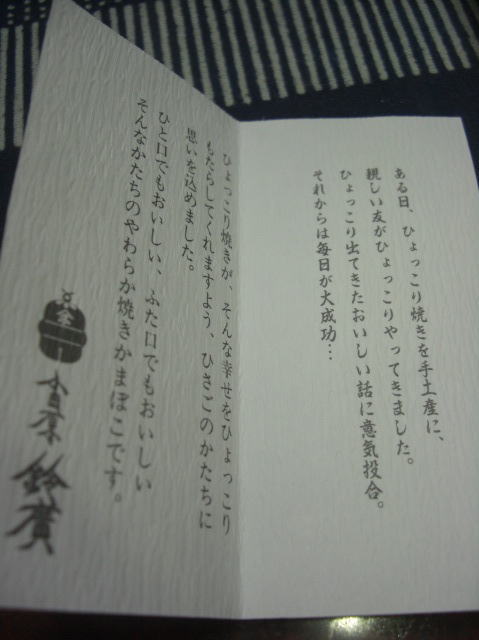 ある日、ひょっこり焼きを手土産に、
親しい友がひょっこりやってきました。
ひょっこり出てきたおいしい話に意気投合。
それからは毎日が大成功…
ひょっこり焼きが、そんな幸せをひょっこり
もたらしてくれますよう、ひさごのかたちに
思いを込めました。
ひと口でもおいしい、ふた口でもおいしい
そんなかたちのやわらか焼きかまぼこです。
鈴廣